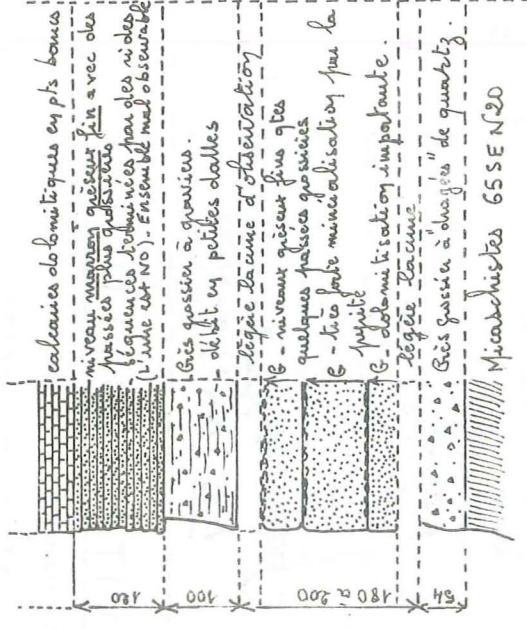 calcaires dolomitiques en pts bancs
niveau marron gréseux fin avec des
passées plus grossières
séquences terminées par des rides
(L'une est NO). Ensemble mal observable
Grès grossier à graviers.
débit en petites dalles
légère lacune d'observation
G - niveaux gréseux fins gtes
quelques passées grossières
G - très forte minéralisation par la
pyrite
G - dolomitisation importante.
légère lacune
Grès grossier à "dragées" de quartz.
Micaschistes 65SE N20
120
100
180 à 200
54